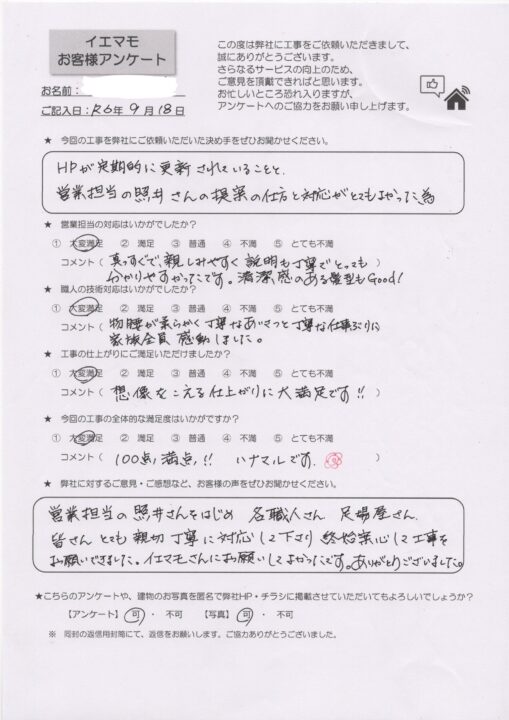 イエマモ
お客様アンケート
この度は弊社に工事をご依頼いただきまして、
誠にありがとうございます。
さらなるサービスの向上のため、
ご意見を頂戴できればと思います。
お忙しいところ恐れ入りますが、
アンケートへのご協力をお願い申し上げます。
お名前：
ご記入日：R6年 9月 18日
★ 今回の工事を弊社にご依頼いただいた決め手をぜひお聞かせください。
HPが定期的に更新されていることと、
営業担当の照井さんの提案の仕方と対応がとてもよかった為
★ 営業担当の対応はいかがでしたか？
① 大変満足 ② 満足 ③ 普通 ④ 不満 ⑤ とても不満
コメント（ 真っすぐで、親しみやすく 説明も丁寧でとっても
分かりやすかったです。清潔感のある髪型もGood! ）
★ 職人の技術対応はいかがでしたか？
① 大変満足 ② 満足 ③ 普通 ④ 不満 ⑤ とても不満
コメント（ 物腰が柔らかく丁寧なあいさつと丁寧な仕事ぶりに
家族全員 感動しました。 ）
★ 工事の仕上がりにご満足いただけましたか？
① 大変満足 ② 満足 ③ 普通 ④ 不満 ⑤ とても不満
コメント（ 想像をこえる仕上がりに大満足です!! ）
★ 今回の工事の全体的な満足度はいかがですか？
① 大変満足 ② 満足 ③ 普通 ④ 不満 ⑤ とても不満
コメント（ 100点満点!! ハナマルです. ）
★ 弊社に対するご意見・ご感想など、お客様の声をぜひお聞かせください。
営業担当の照井さんをはじめ 各職人さん 足場屋さん
皆さん とても 親切 丁寧に対応して下さり 終始安心して工事を
お願いできました。イエマモさんにお願いしてよかったです。ありがとうございました。
★こちらのアンケートや、建物のお写真を匿名で弊社HP・チラシに掲載させていただいてもよろしいでしょうか？
【アンケート】 可 ・ 不可 【写真】 可 ・ 不可
※ 同封の返信用封筒にて、返信をお願いします。ご協力ありがとうございました。